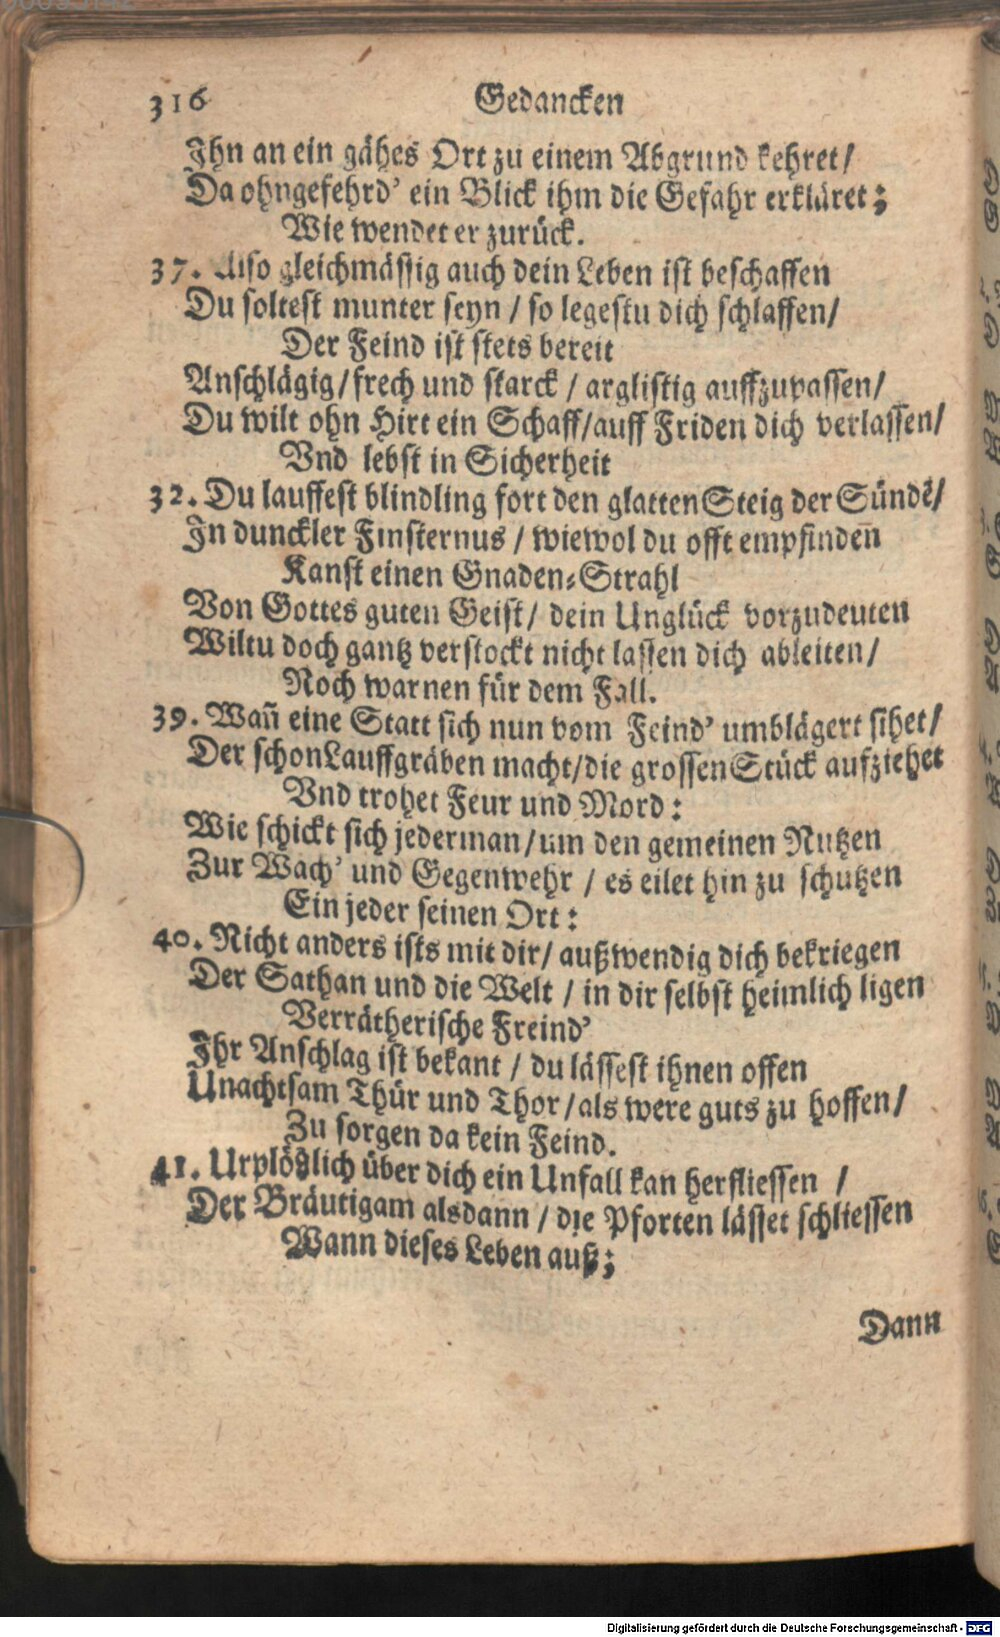 316 Gedancken
Ihn an ein gähes Ort zu einem Abgrund kehret/
Da ohngefehrd' ein Blick ihm die Gefahr erkläret;
Wie wendet er zurück.
37. Also gleichmässig auch dein Leben ist beschaffen
Du soltest munter seyn / so legestu dich schlaffen/
Der Feind ist stets bereit
Anschlägig/frech und starck / arglistig auffzupassen/
Du wilt ohn Hirt ein Schaff/auff Friden dich verlassen/
Vnd lebst in Sicherheit
32. Du lauffest blindling fort den glatten Steig der Sündē/
In dunckler Finsternus / wiewol du offt empfindeñ
Kanst einen Gnaden-Strahl
Von Gottes guten Geist/ dein Unglück vorzudeuten
Wiltu doch gantz verstockt nicht lassen dich ableiten/
Noch warnen für dem Fall.
39. Wañ eine Statt sich nun vom Feind' umblägert sihet/
Der schon Lauffgräben macht/die grossen Stück aufziehet
Vnd trohet Feur und Mord:
Wie schickt sich jederman/um den gemeinen Nutzen
Zur Wach' und Gegenwehr / es eilet hin zu schutzen
Ein jeder seinen Ort:
40. Nicht anders ists mit dir/ außwendig dich bekriegen
Der Sathan und die Welt / in dir selbst heimlich ligen
Verrätherische Freind'
Ihr Anschlag ist bekant / du lässest ihnen offen
Unachtsam Thür und Thor/als were guts zu hoffen/
Zu sorgen da kein Feind.
41. Urplötzlich über dich ein Unfall kan herfliessen /
Der Bräutigam alsdann / die Pforten lässet schliessen
Wann dieses Leben auß;
Dann
Digitalisierung gefördert durch die Deutsche Forschungsgemeinschaft - DFG